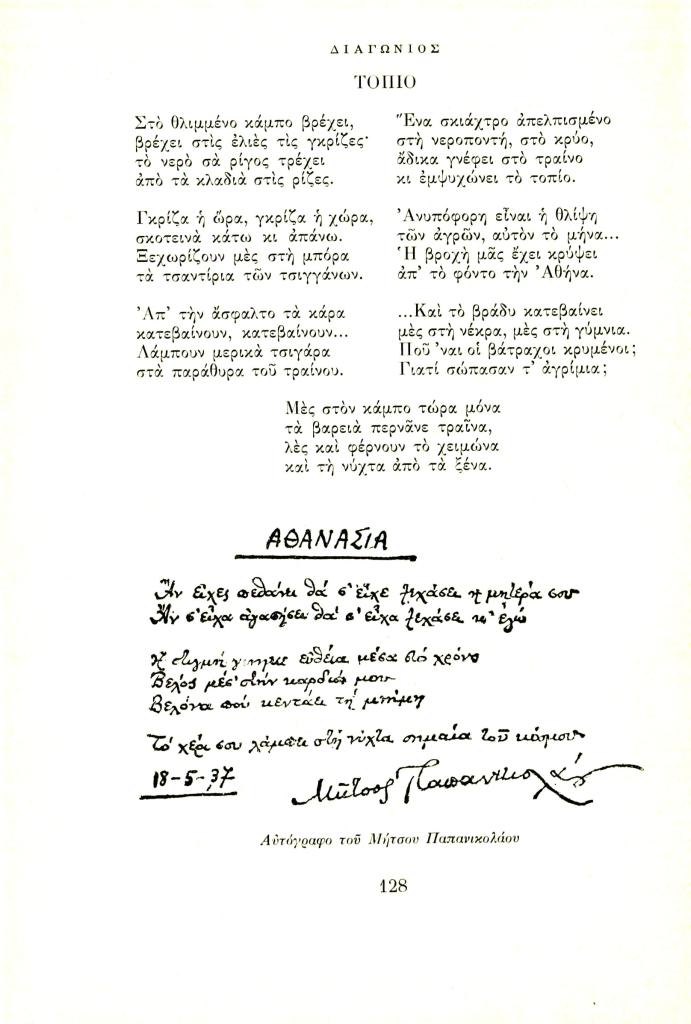 ΔΙΑΓΩΝΙΟΣ
ΤΟΠΙΟ
Στὸ θλιμμένο κάμπο βρέχει,
βρέχει στὶς ἐλιὲς τὶς γκρίζες·
τὸ νερὸ σὰ ρίγος τρέχει
ἀπὸ τὰ κλαδιὰ στὶς ρίζες.
Γκρίζα ἡ ὥρα, γκρίζα ἡ χώρα,
σκοτεινὰ κάτω κι ἀπάνω.
Ξεχωρίζουν μὲς στὴ μπόρα
τὰ τσαντίρια τῶν τσιγγάνων.
Ἀπ' τὴν ἄσφαλτο τὰ κάρα
κατεβαίνουν, κατεβαίνουν...
Λάμπουν μερικὰ τσιγάρα
στὰ παράθυρα τοῦ τραίνου.
Ἕνα σκιάχτρο ἀπελπισμένο
στὴ νεροποντή, στὸ κρύο,
ἄδικα γνέφει στὸ τραίνο
κι ἐμψυχώνει τὸ τοπίο.
Ἀνυπόφορη εἶναι ἡ θλίψη
τῶν ἀγρῶν, αὐτὸν τὸ μήνα...
Ἡ βροχὴ μᾶς ἔχει κρύψει
ἀπ' τὸ φόντο τὴν Ἀθήνα.
...Καὶ τὸ βράδυ κατεβαίνει
μὲς στὴ νέκρα, μὲς στὴ γύμνια.
Ποῦ 'ναι οἱ βάτραχοι κρυμένοι;
Γιατί σώπασαν τ' ἀγρίμια;
Μὲς στὸν κάμπο τώρα μόνα
τὰ βαρειὰ περνᾶνε τραῖνα,
λὲς καὶ φέρνουν τὸ χειμώνα
καὶ τὴ νύχτα ἀπὸ τὰ ξένα.
ΑΘΑΝΑΣΙΑ
Ἄν εἶχες πεθάνει θά σ' εἶχε ξεχάσει ἡ μητέρα σου
Ἄν σ' εἶχα ἀγαπήσει θά σ' εἶχα ξεχάσει κ' ἐγώ
Ἡ στιγμή γίνηκε εὐθεία μέσα στό χρόνο
Βέλος μές' στήν καρδιά μου
Βελόνα πού κεντάει τή μνήμη
Τό χέρι σου λάμπει στή νύχτα σημαία τοῦ κόσμου
18-5-37
Μῆτσος Παπανικολάου
Αὐτόγραφο τοῦ Μήτσου Παπανικολάου
128